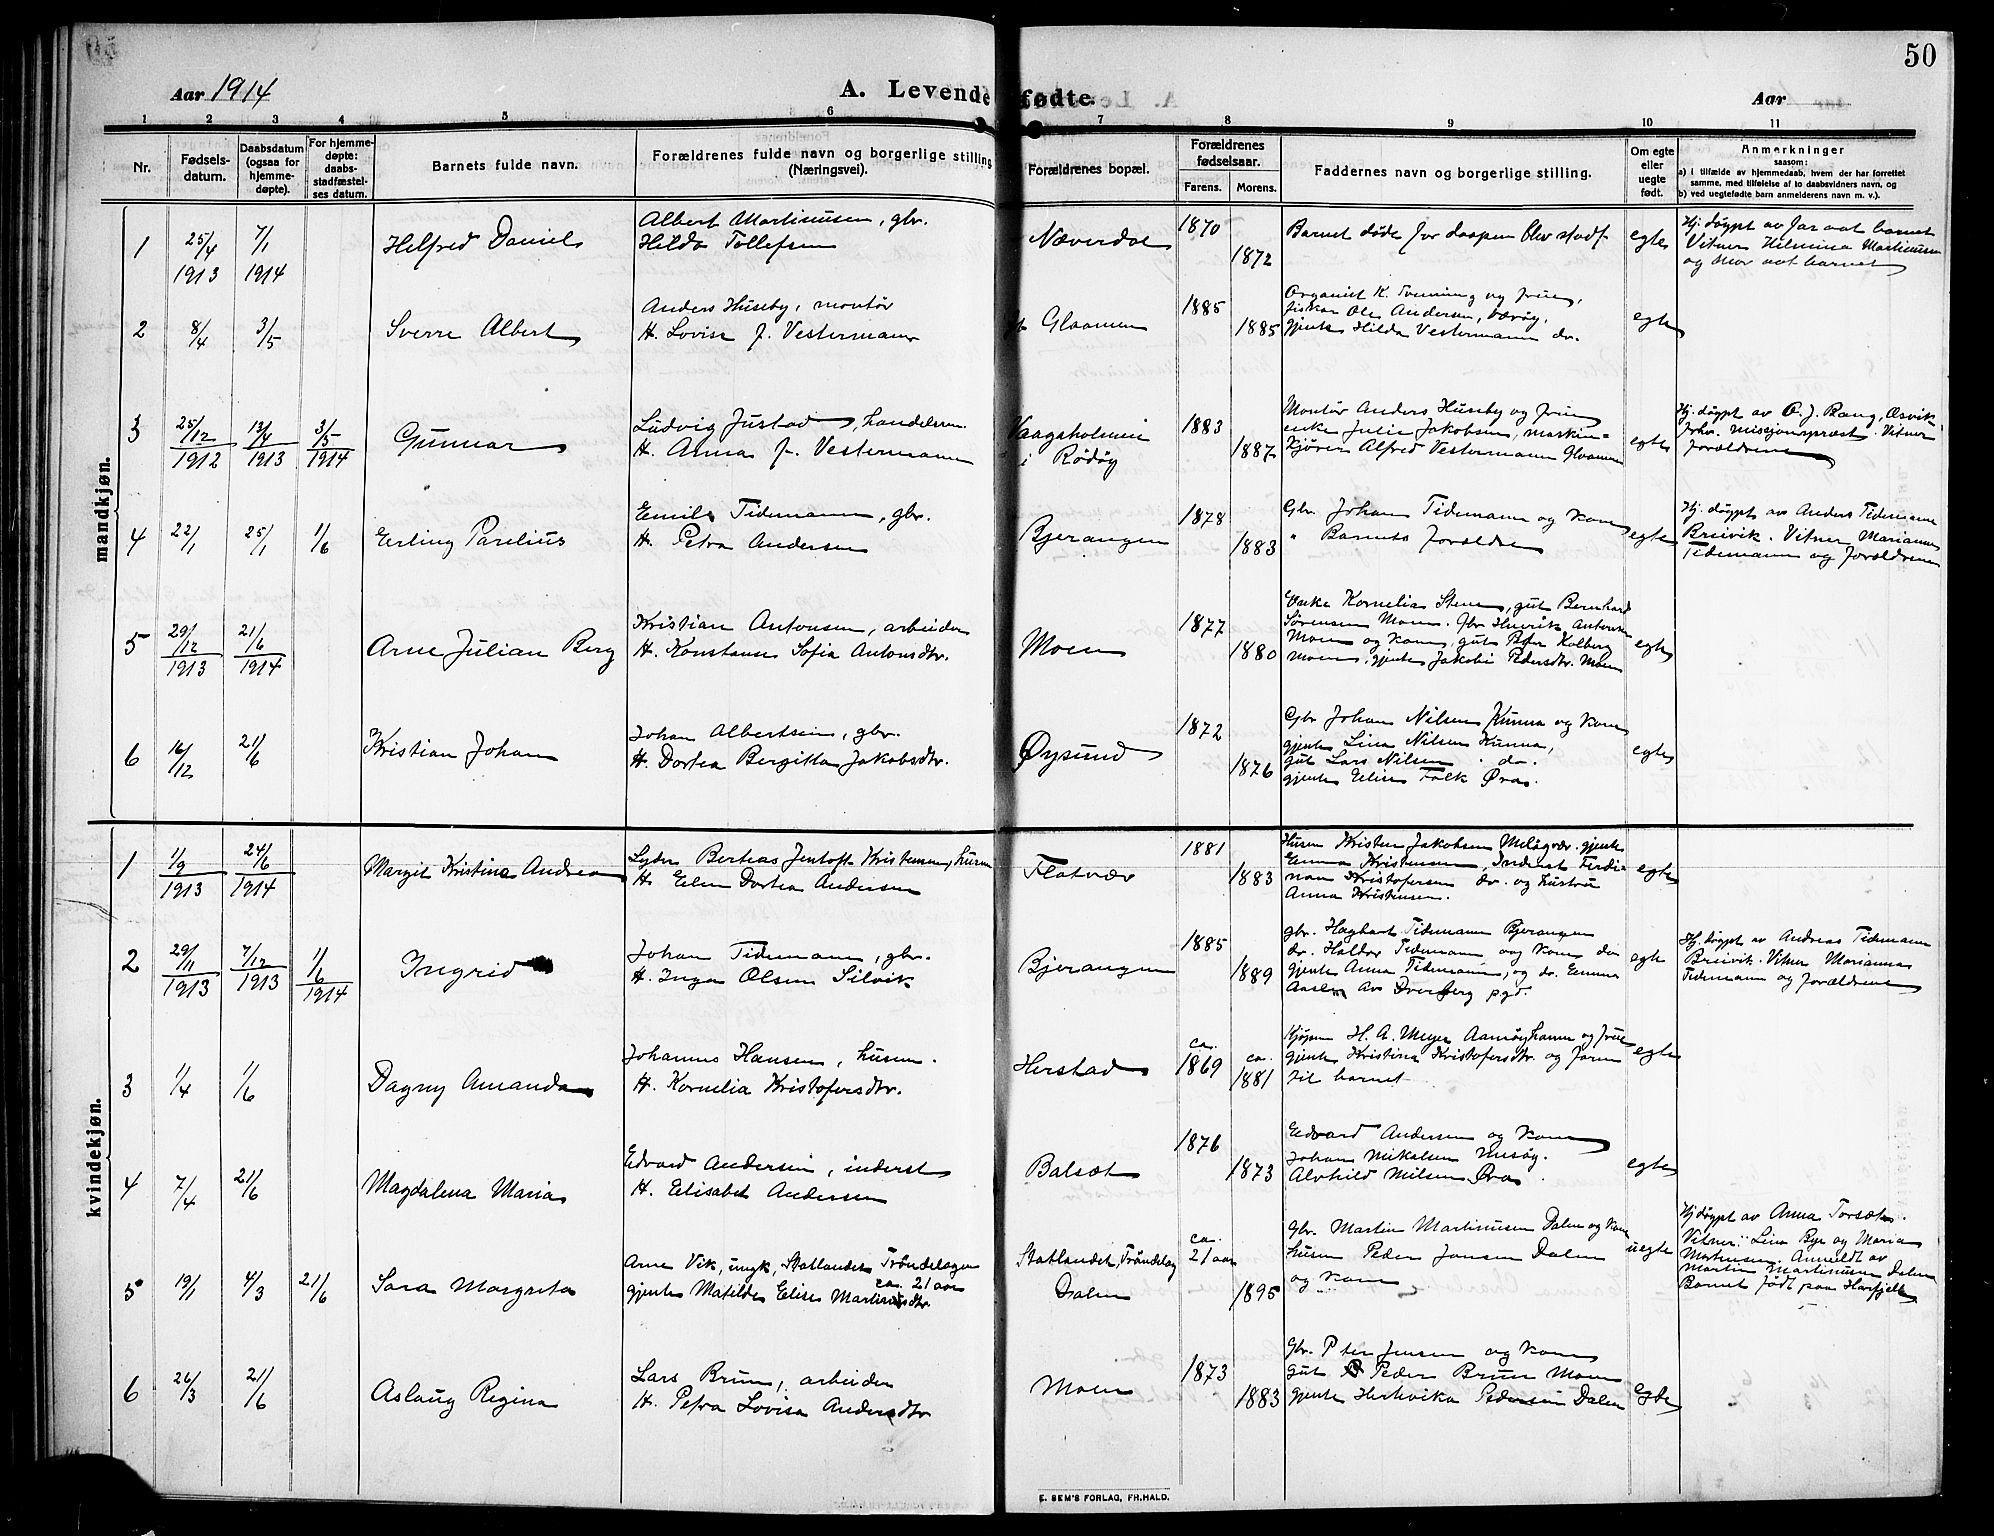 50
Aar 1914
A. Levendefødte.
Aar
1 2 3 4 5 6 7 8 9 10 11
Nr.
Fødsels-
datum.
Daabsdatum
(ogsaa for
hjemme-
døpte).
For hjemme-
døpte:
daabs-
stadfæstel-
ses datum.
Barnets fulde navn.
Forældrenes fulde navn og borgerlige stilling
(Næringsvei).
Forældrenes bopæl.
Forældrenes
fødselsaar.
Farens. Morens.
Faddernes navn og borgerlige stilling.
Om egte
eller
uegte
født.
Anmerkninger
saasom:
a) i tilfælde av hjemmedaab, hvem der har forrettet
samme, med tilføielse af to daabsvidners navn, og
b) ved uegtefødte barn anmelderens navn m. v.).
mandkjøn.
1
25/4 1913
7/1 1914
Helfred Daniel
Albert Martinusen, gbr.
Hilda Tollefsen
Næverdal
1870
1872
Barnet døde før daapen blev stadf.
egte
Hj. døypt av far aat barnet
Vitner Helmina Martinusen
og mor aat barnet
2
8/4
3/5
Sverre Albert
Anders Huseby, montör
H. Lovise f. Vestermann
Glaamen
1885
1885
Organist K. Tvenning og frue,
fiskar Ole Andersen, Værøy,
gjente Hilda Vestermann do.
egte
3
25/12 1912
13/4 1913
3/5 1914
Gunnar
Ludvig Justad, handelsm.
H. Anna f. Vestermann
Vaagaholmen
i Rödöy
1883
1887
Montör Anders Huseby og frue
enke Julie Jakobsen, maskin=
kjörer Alfred Vestermann Glaamen
egte
Hj. døypt av O. J. Bang, Æsvik
forhv. misjonsprest. Vitner
forældrene
4
22/1
25/1
1/6
Erling Parelius
Emil Tidemann, gbr.
H. Petra Andersen
Bjerangen
1878
1883
Gbr. Johan Tidemann og kone
" Barnets forældre
egte
Hj. døypt av Anders Tidemann
Breivik. Vitner Marianna
Tidemann og forældrene
5
29/12 1913
21/6 1914
Arne Julian Berg
Kristian Antonsen, arbeider
H. Konstanse Sofia Antonsdtr.
Moen
1877
1880
Enke Kornelia Stene, gut Bernhard
Sörensen Moen. Gbr Henrik Antonsen
Moen og kone, gut Peter Kolberg
Moen, gjente Jakobie Pedersdtr. Moen
egte
6
16/12
21/6
Kristian Johan
Johan Albertsen, gbr.
H. Dortea Bergitta Jakobsdtr.
Øysund
1872
1876
Gbr Johan Nilsen Kunna og kone
gjente Lina Nilsen Kunna,
gut Lars Nilsen do.
gjente Eline Falk Øra.
egte
kvindekjøn.
1
1/9 1913
24/6 1914
Margit Kristine Andrea
Lyder Berteas Jentoft Kristensen, husm
H. Elen Dortea Andersen
Flatvær
1881
1883
Husm Kristen Jakobsen Meløyvær. gjente
Emma Kristensen, Inderst Ferdi-
nan Kristofersen do. og hustru
Anna Kristensen.
egte
2
29/11 1913
7/12 1913
1/6 1914
Ingrid
Johan Tidemann, gbr.
H. Inga Olsen Selvik
Bjerangen
1885
1889
gbr. Hagbart Tidemann Bjerangen
do. Haldor Tidemann og kone do
gjente Anna Tidemann, og do. Emma
Aasen av Dverberg pgd.
egte
Hj. døypt av Andreas Tidemann
Breivik. Vitner Marianna
Tidemann og forældrene
3
1/4
1/6
Dagny Amanda
Johannes Hansen, husm.
H. Kornelia Kristofersdtr.
Herstad
ca. 1869
ca. 1881
Kjøpm H. A. Meyer Aamøyhamn og frue
gjente Kristina Kristofersdtr. og faren
til barnet
egte
4
7/4
21/6
Magdalena Maria
Edvard Andersen, inderst
H. Elisabet Andersen
Balsæt
1876
1873
Edvard Andersen og kone
Johan Mikalsen Mesøy.
Alvhild Nilsen Øra.
egte
5
19/1
4/3
21/6
Sara Margreta
Arne Vik, ungk, Statlandet Trøndelagen
ca. 21 aar
gjente Matilde Elise Martinusdtr.
Statlandet, Trøndelag
Dalen
ca. 21 aar
1895
Gbr. Martin Martinusen Dalen og kone
husm Peder Jensen Dalen
og kone
uegte
Hj døypt av Anna Torsæt.
Vitner: Lina Bye og Maria
Martinsen. Anmeldt av
Martin Martinusen Dalen
Barnet født paa Havfjell
6
26/3
21/6
Aslaug Regina
Lars Brun, arbeider
H. Petra Lovisa Andersdtr
Moen
1873
1883
Gbr. Peter Jensen og kone
gut Peder Brun Moen
gjente Hertevika Pedersen Dalen
egte
E. SEM'S FORLAG, FR.HALD.